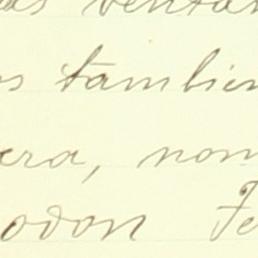 as ventan
os tambien
era, nom
odon Fe